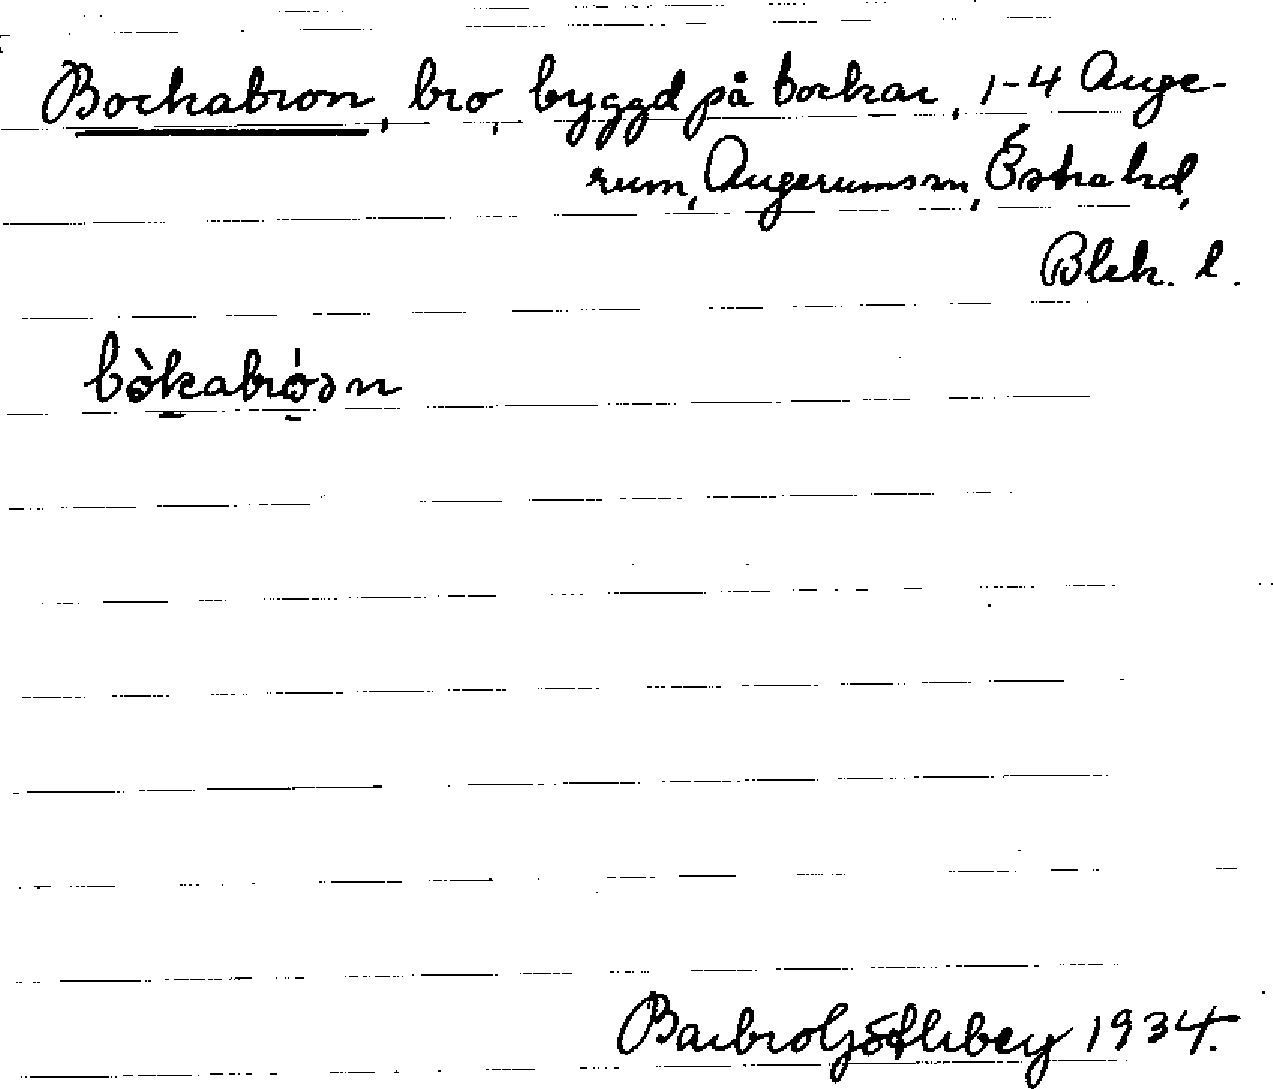 Bockabron, bro, byggd på bockar, 1-4 Auge-
rum, Augerums sn, Östra hd,
Blek. l.
bòkabróən
Barbro Götlibey 1934.